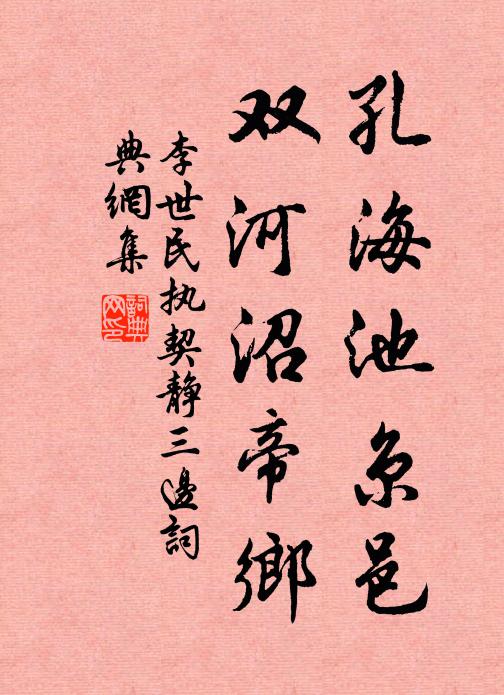 孔海池京邑
双河沼帝鄉
李世民执契静三邊詞
典網集
詞典网印